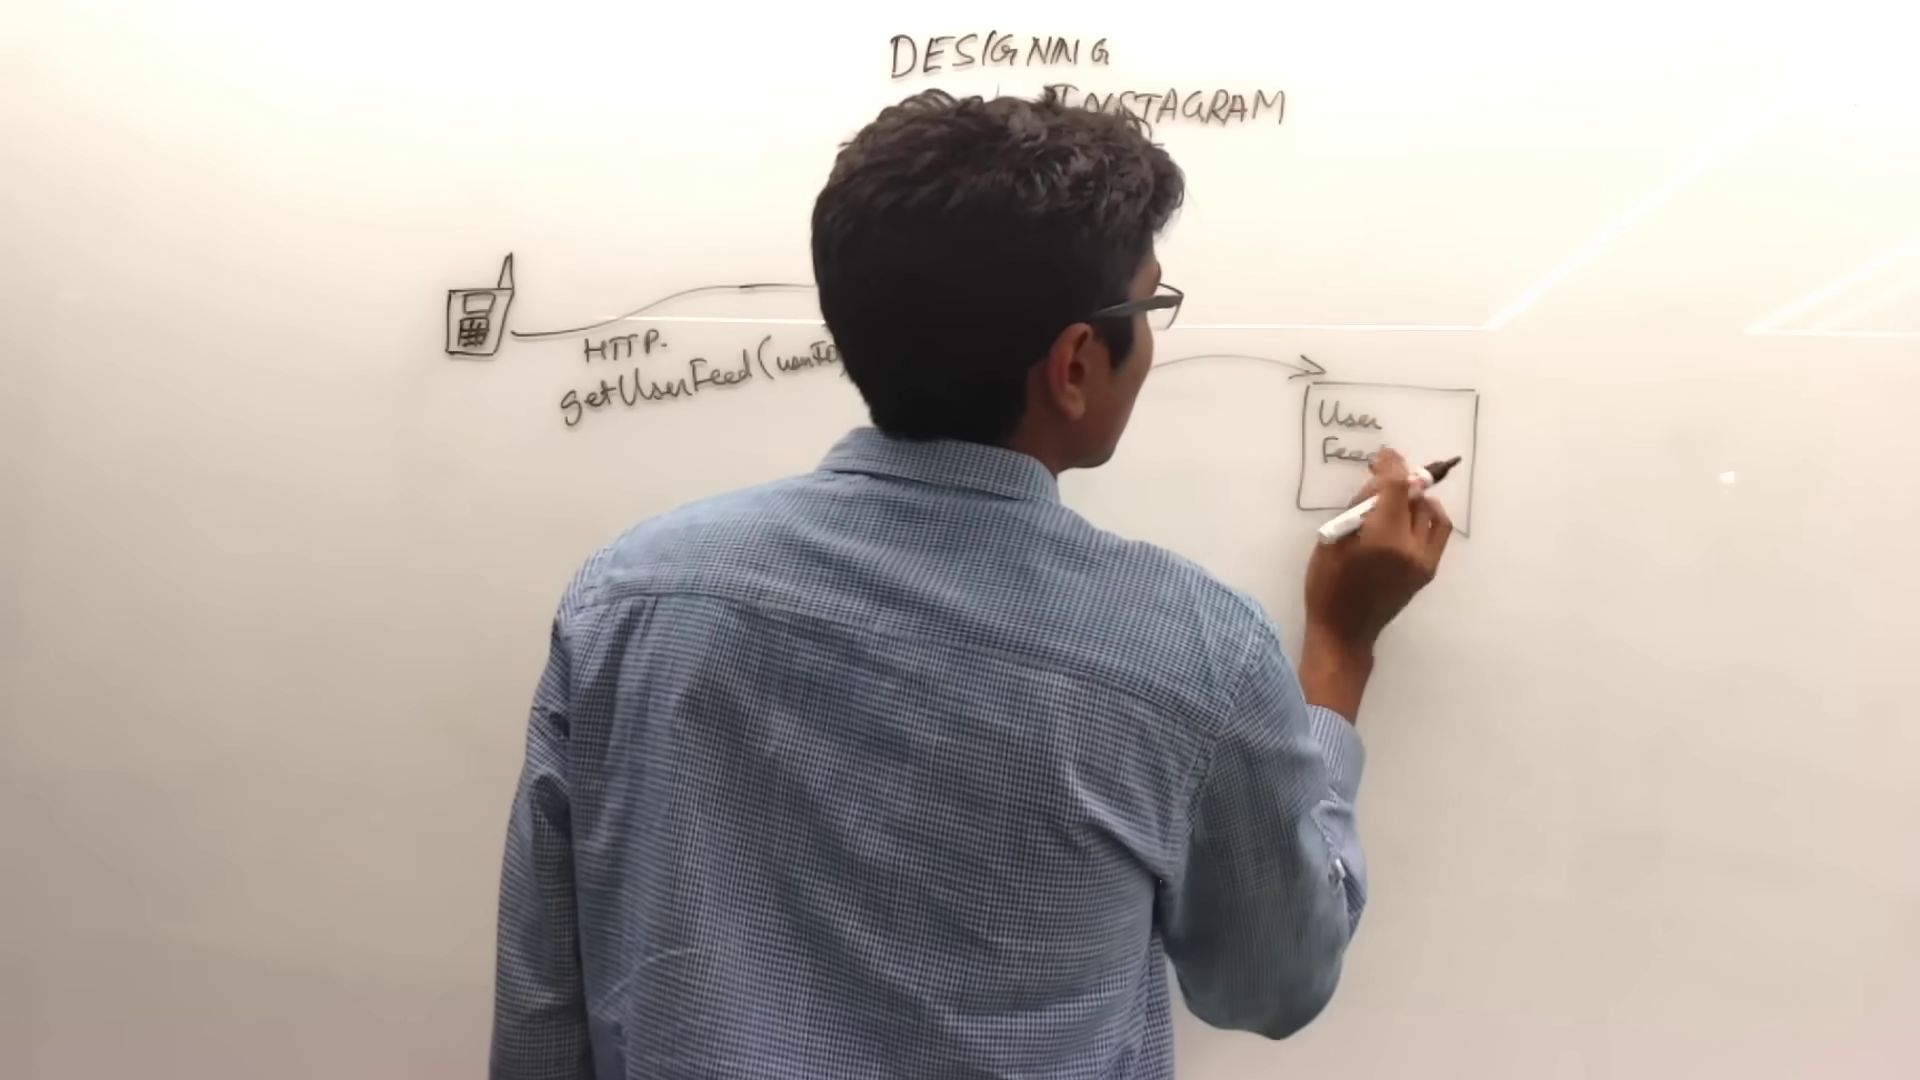 DESIGNING
INSTAGRAM
HTTP.
getUserFeed(
User
Feed